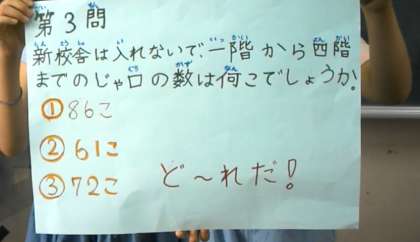 第3問
新校舎は入れないで、一階から四階
までのじゃ口の数は何こでしょうか。
①86こ
②61こ
③72こ
ど〜れだ!